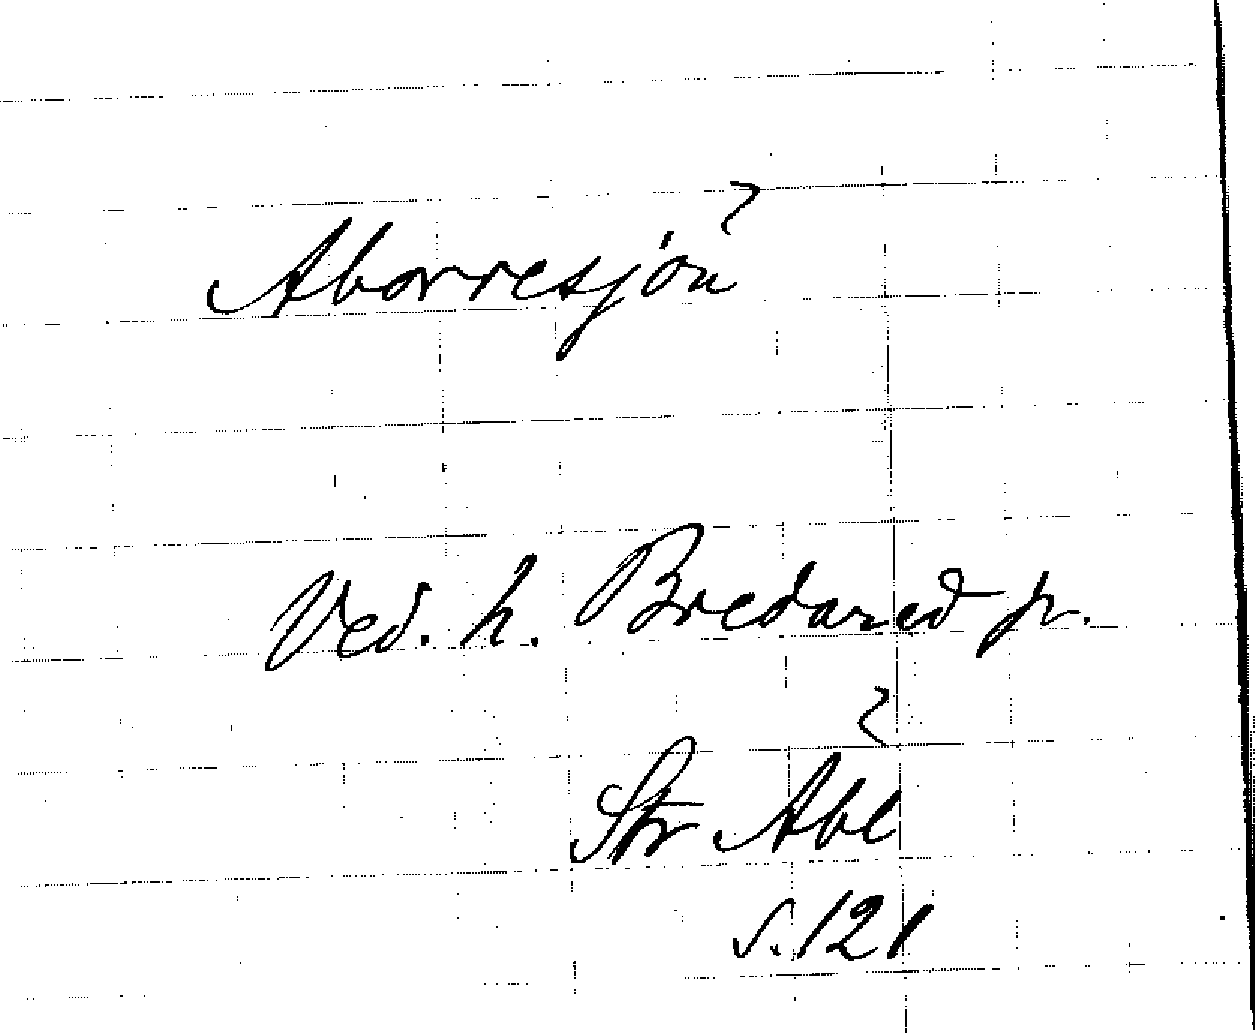 Aborresjön
Ved. h. Bredared sn.
Str Abl
s. 121